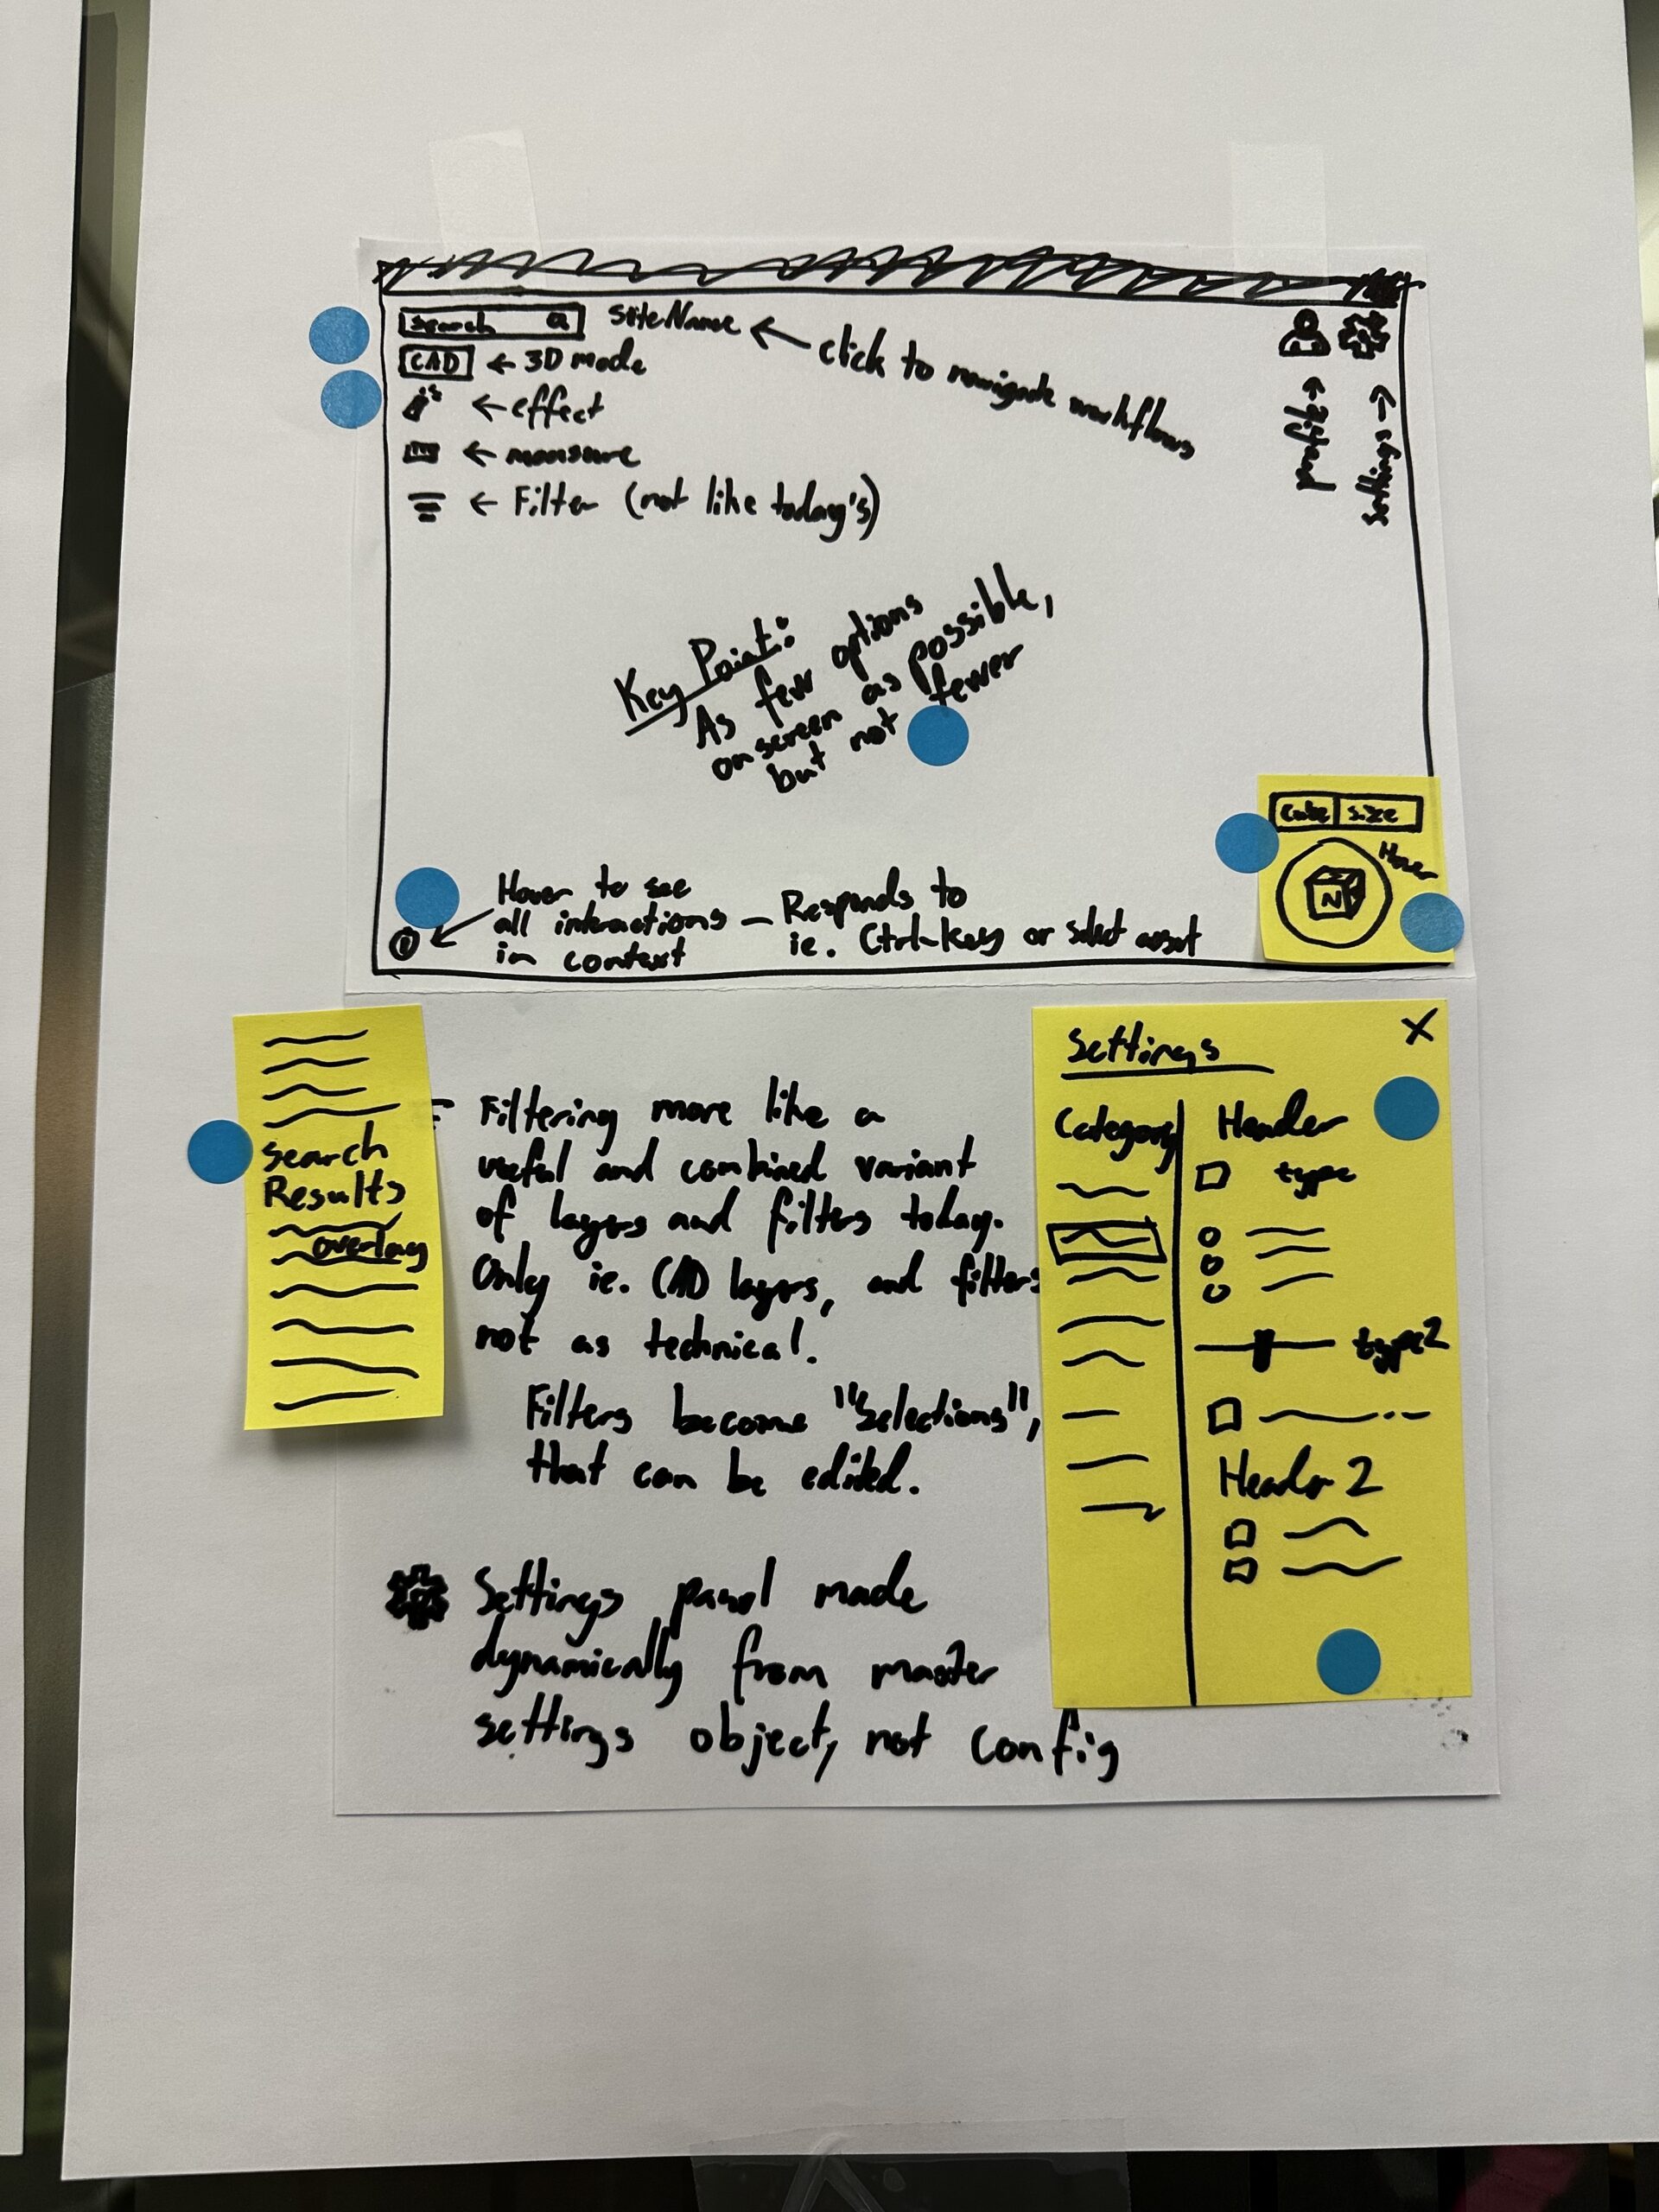 search
siteName
click to navigate workflows
CAD
← 3D mode
← effect
← measure
← Filter (not like today's)
profile →
Settings →
Key Point:
As few options
on screen as possible,
but not fewer
Cube size
Hover
N
Hover to see
all interactions – Responds to
in context ie. Ctrl-key or select asset
i
search
Results
overlay
Filtering more like a
useful and combined variant
of layers and filters today.
Only ie. CAD layers, and filters
not as technical.
Filters become "Selections",
that can be edited.
Settings panel made
dynamically from master
settings object, not config
Settings X
Category
Header
type
type2
Header 2